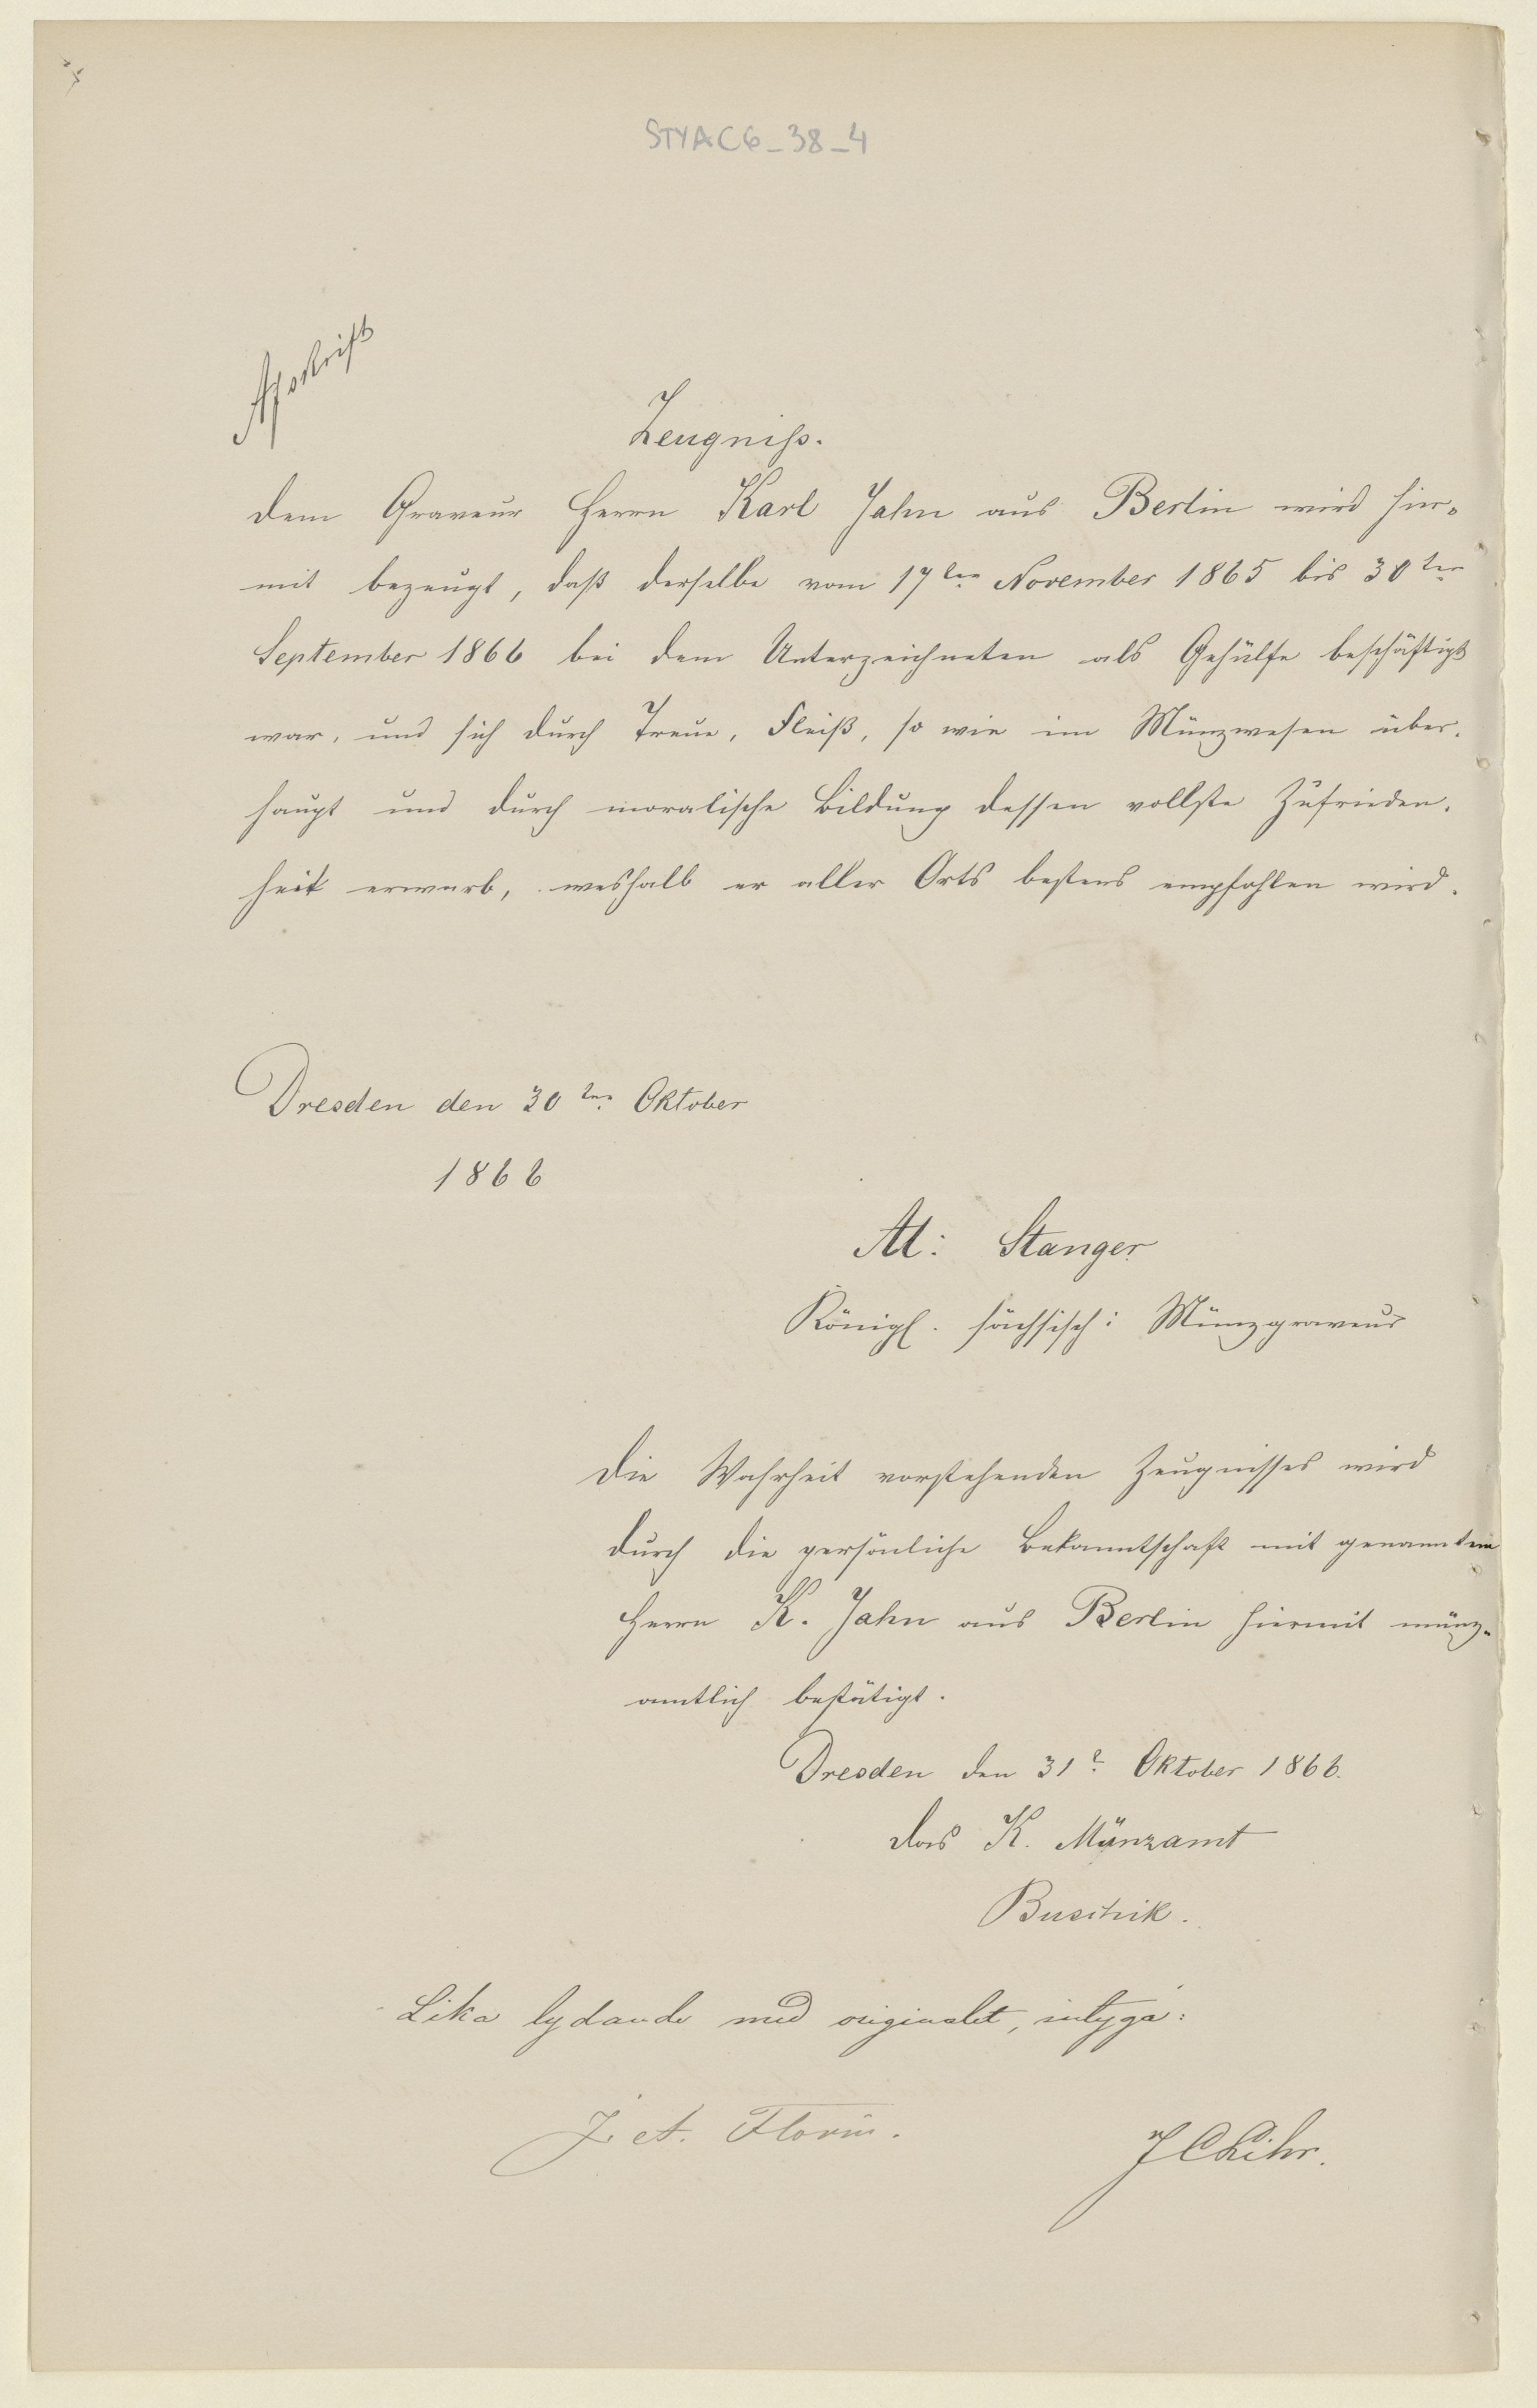 STYAC6_38_4
Afskrift
Zeugniss.
Dem Graveur Herrn Karl Jahn aus Berlin wird hier-
mit bezeugt, daß derselbe vom 17ten November 1865 bis 30ten
September 1866 bei dem Unterzeichneten als Gehülfe beschäftigt
war, und sich durch Treue, Fleiß, so wie im Münzwesen über-
haupt und durch moralische Bildung dessen vollste Zufrieden-
heit erwarb, weshalb er aller Orts bestens empfohlen wird.
Dresden den 30ten Oktober
1866
Al: Stanger
Königl. sächsisch: Münzgraveur
Die Wahrheit vorstehenden Zeugnisses wird
durch die persönliche Bekanntschaft mit genanntem
Herrn K. Jahn aus Berlin hiermit münz-
amtlich bestätigt.
Dresden den 31t Oktober 1866.
Das K. Münzamt
Buschik.
Lika lydande med originalet, intyga:
J. A. Florin.